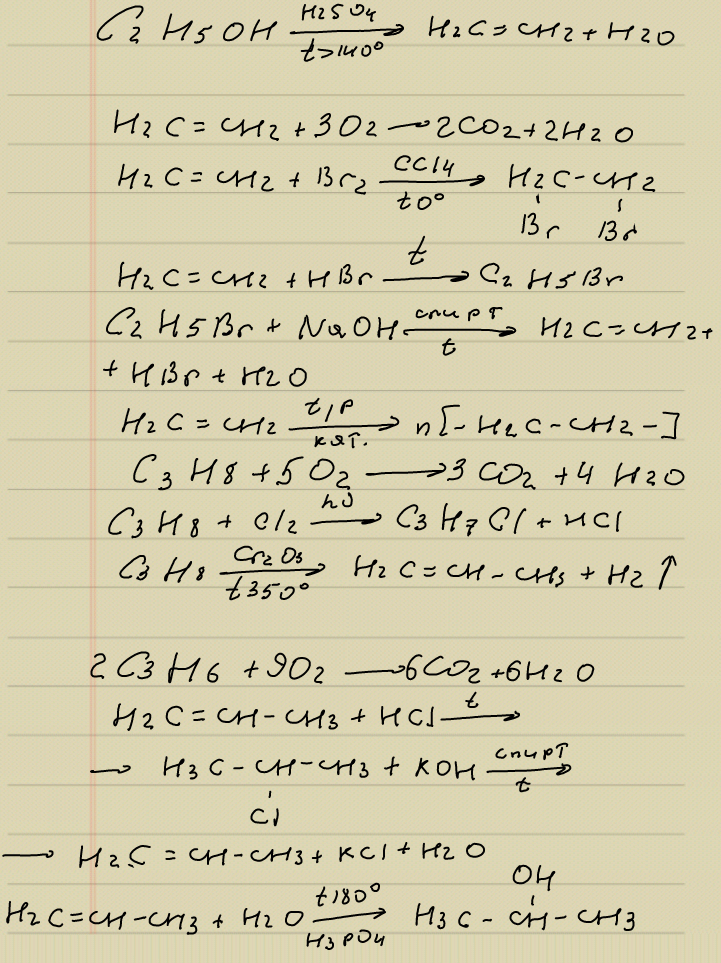 C2H5OH H2SO4 → t>140° H2C=CH2+H2O
H2C=CH2+3O2 → 2CO2+2H2O
H2C=CH2+Br2 CCl4 → t0° H2C-CH2
Br Br
H2C=CH2+HBr t → C2H5Br
C2H5Br+NaOH спирт → t H2C=CH2+
+HBr+H2O
H2C=CH2 t,p → кат. n[-H2C-CH2-]
C3H8+5O2 → 3CO2+4H2O
C3H8+Cl2 hν → C3H7Cl+HCl
C3H8 Cr2O3 → t350° H2C=CH-CH3+H2↑
2C3H6+9O2 → 6CO2+6H2O
H2C=CH-CH3+HCl t →
→ H3C-CH-CH3+KOH спирт → t
Cl
→ H2C=CH-CH3+KCl+H2O
OH
H2C=CH-CH3+H2O t180° → H3PO4 H3C-CH-CH3